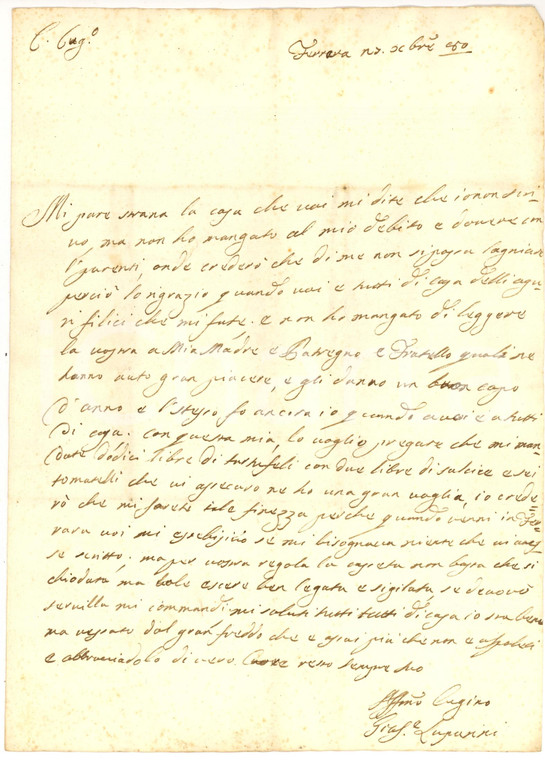 C. Cug.º
Ferrara 27. Xbre 850
Mi pare strana la cosa che voi mi dite che io non scri-
vo, ma non ho mangato al mio debito e dovere con
i parensi, onde crederò che di me non si possa lagniare
perciò lo rigrazio quando voi e tutti di casa delli agu-
ri filici che mi fate. e non ho mangato di leggere
la vostra a Mia Madre e Patregno e Fratello quali ne
hanno auto gran piacere, e gli danno un buon capo
d'anno e l'stesso fo ancora io quando a voi e a tutti
di casa. con questa mia, lo voglio pregare che mi man-
date dodici libre di tartufeli con due libre di salcice e sei
tomatelli che vi assecuro ne ho una gran voglia, io crede-
rò che mi farete tale finezza perche quando venni in Fer-
rara voi mi esebissivo se mi bisognava niente che vi aves-
se scritto; ma per vostra regola la casseta non basa che si
chiodata, ma vole essere ben legata e sigilata se devovo
servilla mi commandi mi saluti tutti tutti di casa io sto bene
ma vessato dal gran freddo che e assai più che non e a
e abbraciadolo di vero Cuore resto sempre suo
Affmo Cugino
Gius.e Lupanni